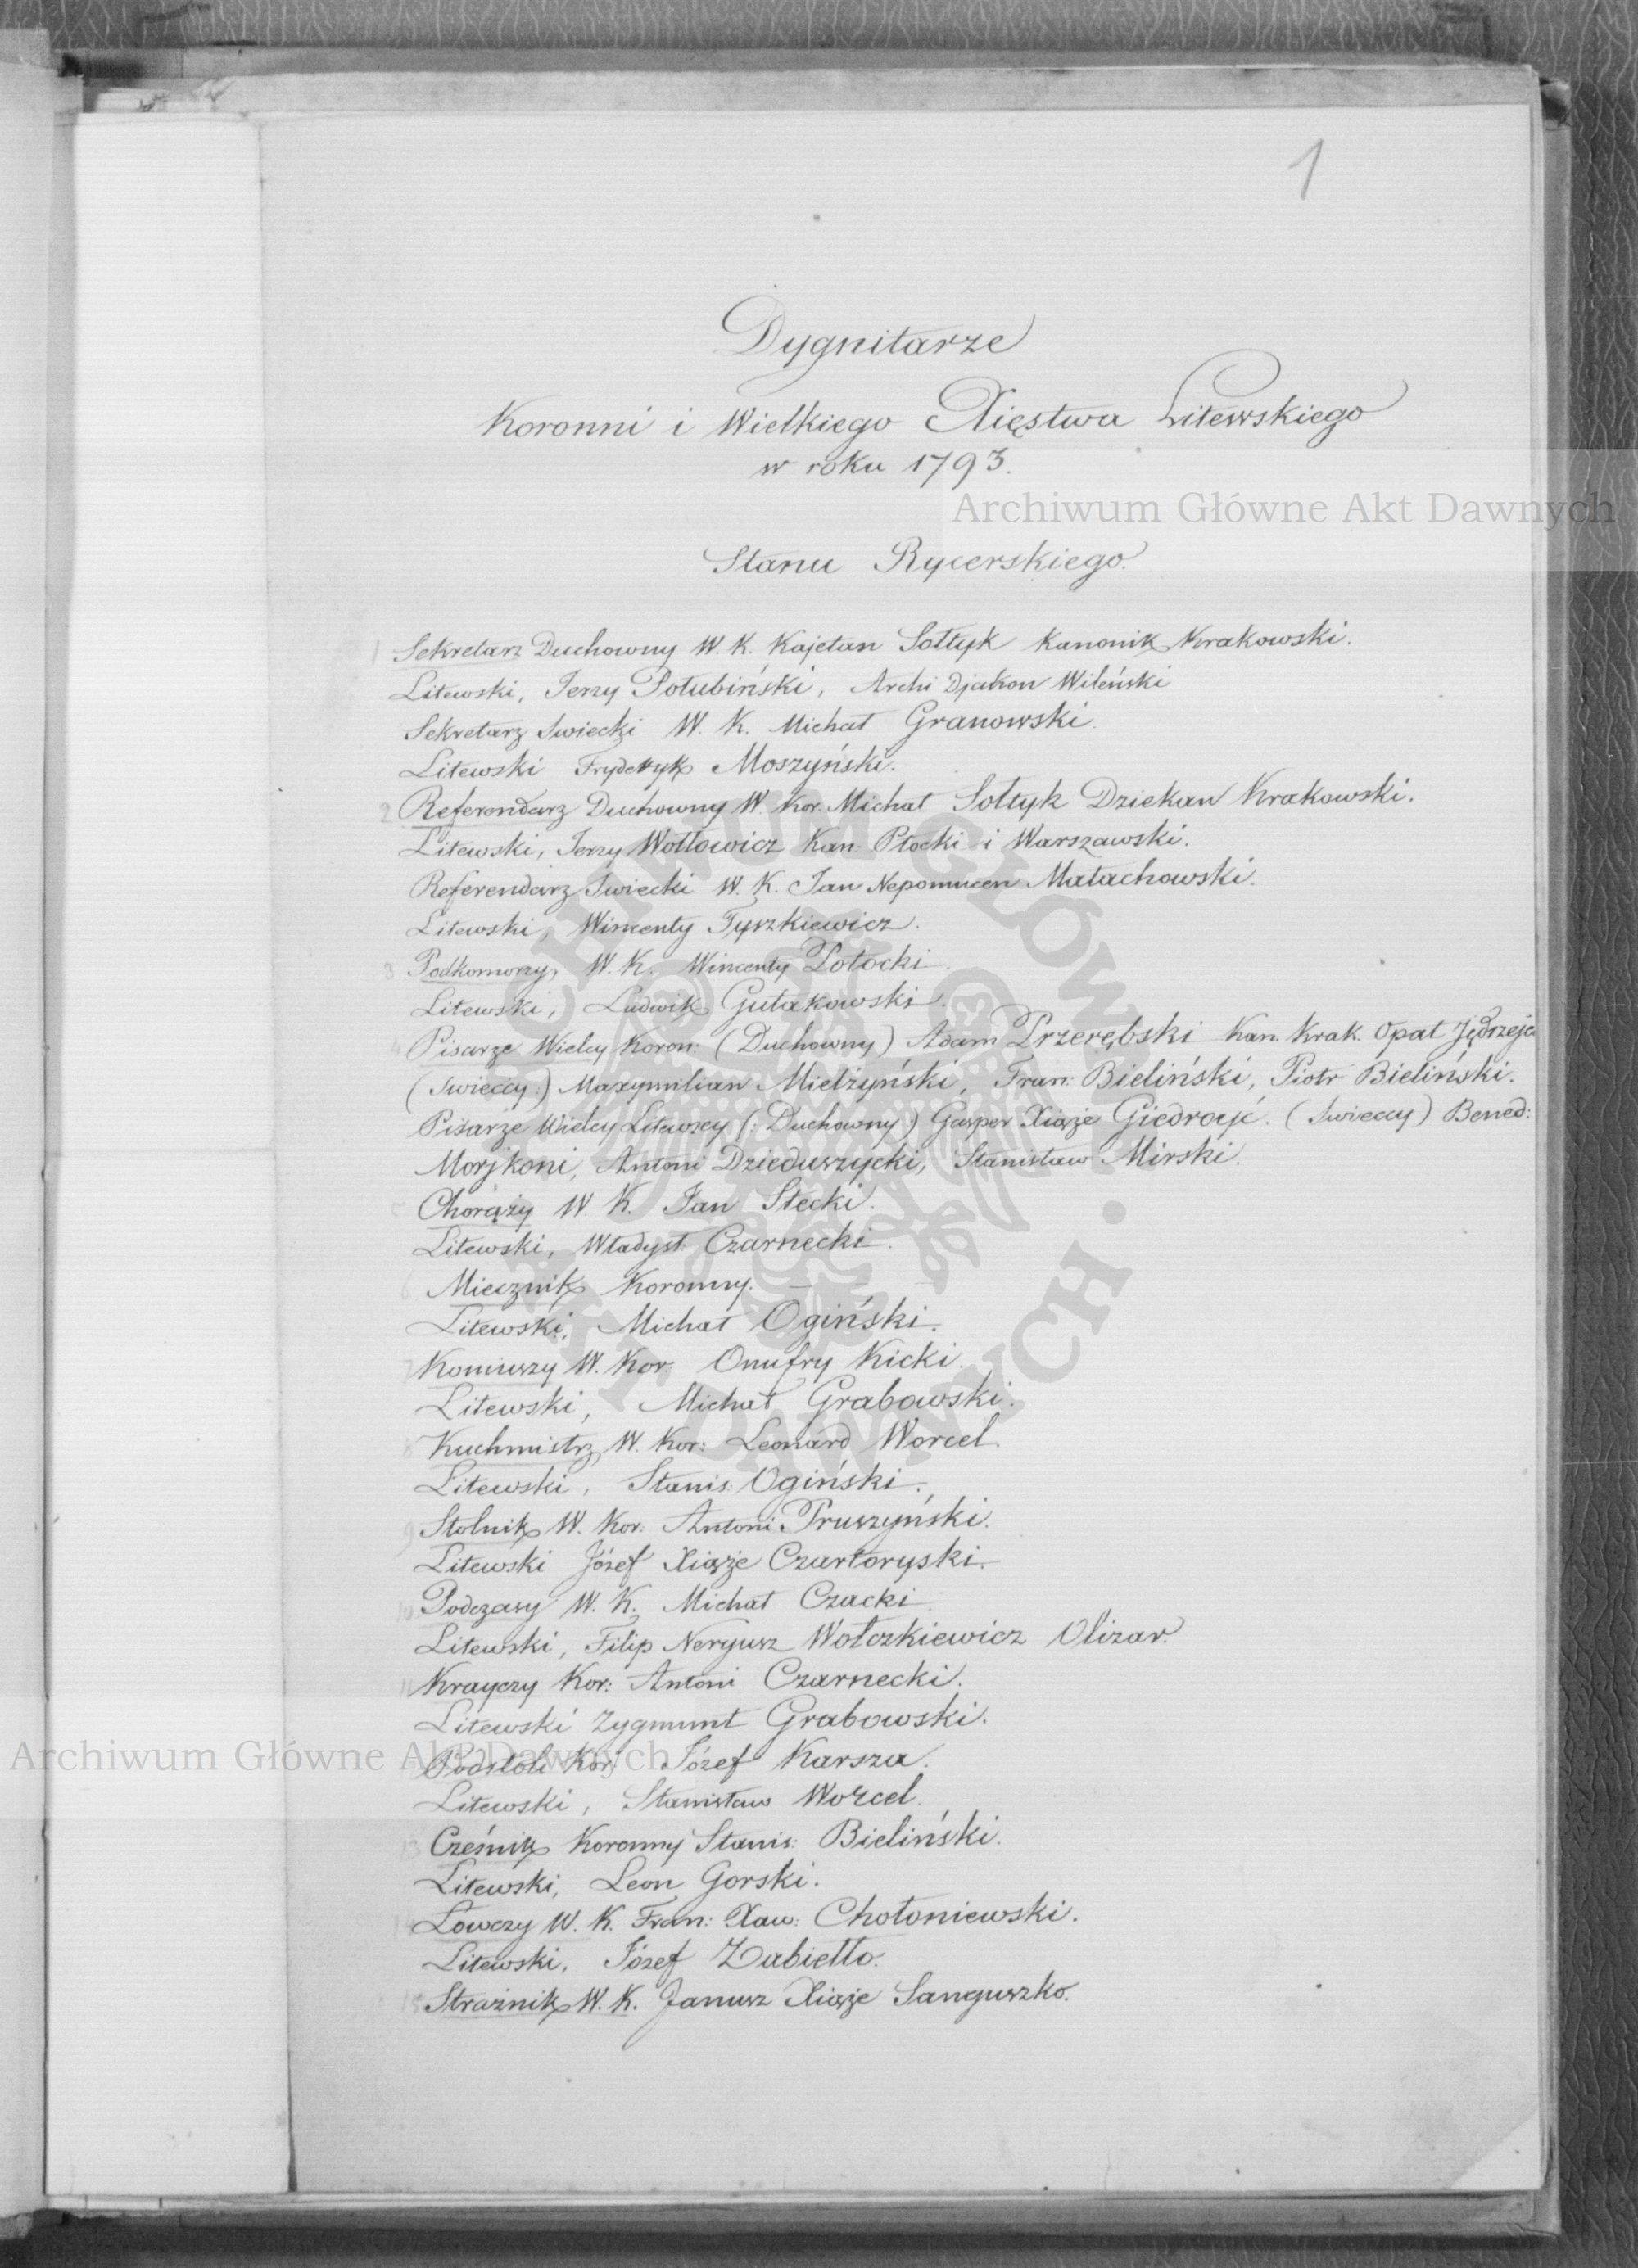 1
Dygnitarze
Koronni i Wielkiego Xięstwa Litewskiego
w roku 1793.
Archiwum Główne Akt Dawnych
Stanu Rycerskiego.
1 Sekretarz Duchowny W. K. Kajetan Sołtyk Kanonik Krakowski.
Litewski, Jerzy Połubiński, Archi Djakon Wileński
Sekretarz Swiecki W. K. Michał Granowski.
Litewski Fryderyk Moszyński.
2 Referendarz Duchowny W. Kor. Michał Sołtyk Dziekan Krakowski.
Litewski, Jerzy Wołłowicz Kan: Płocki i Warszawski.
Referendarz Swiecki W. K. Jan Nepomucen Małachowski.
Litewski, Wincenty Tyszkiewicz.
3 Podkomorzy, W. K. Wincenty Potocki.
Litewski, Ludwik Gutakowski.
4 Pisarze Wielcy Koron: (Duchowny) Adam Przerębski Kan. Krak. Opat Jędrzejo
(Swieccy:) Maxymilian Mielżyński, Fran: Bieliński, Piotr Bieliński.
Pisarze Wielcy Litewscy (: Duchowny) Gasper Xiąże Giedroyć. (Swieccy) Bened:
Morjkoni, Antoni Dzieduszycki, Stanisław Mirski.
5 Chorąży W. K. Jan Stecki.
Litewski, Władysł: Czarnecki.
6 Miecznik Koronny. — — —
Litewski, Michał Ogiński.
7 Koniuszy W. Kor: Onufry Kicki.
Litewski, Michał Grabowski.
8 Kuchmistrz W. Kor: Leonard Worcel.
Litewski, Stanis: Ogiński.
9 Stolnik W. Kor: Antoni Pruszyński.
Litewski Józef Xiąże Czartoryski.
10 Podczaszy W. K. Michał Czacki.
Litewski, Filip Neryusz Wołczkiewicz Olizar.
11 Krayczy Kor: Antoni Czarnecki.
Litewski Zygmunt Grabowski.
Archiwum Główne Akt Dawnych
Podstoli Kor: Józef Karsza.
Litewski, Stanisław Worcel.
13 Cześnik Koronny Stanis: Bieliński.
Litewski, Leon Gorski.
14 Łowczy W. K. Fran: Xaw: Chołoniewski.
Litewski, Józef Zabiełło.
15 Strażnik W. K. Janusz Xiąże Sanguszko.
ARCHIWUM GŁÓWNE AKT DAWNYCH